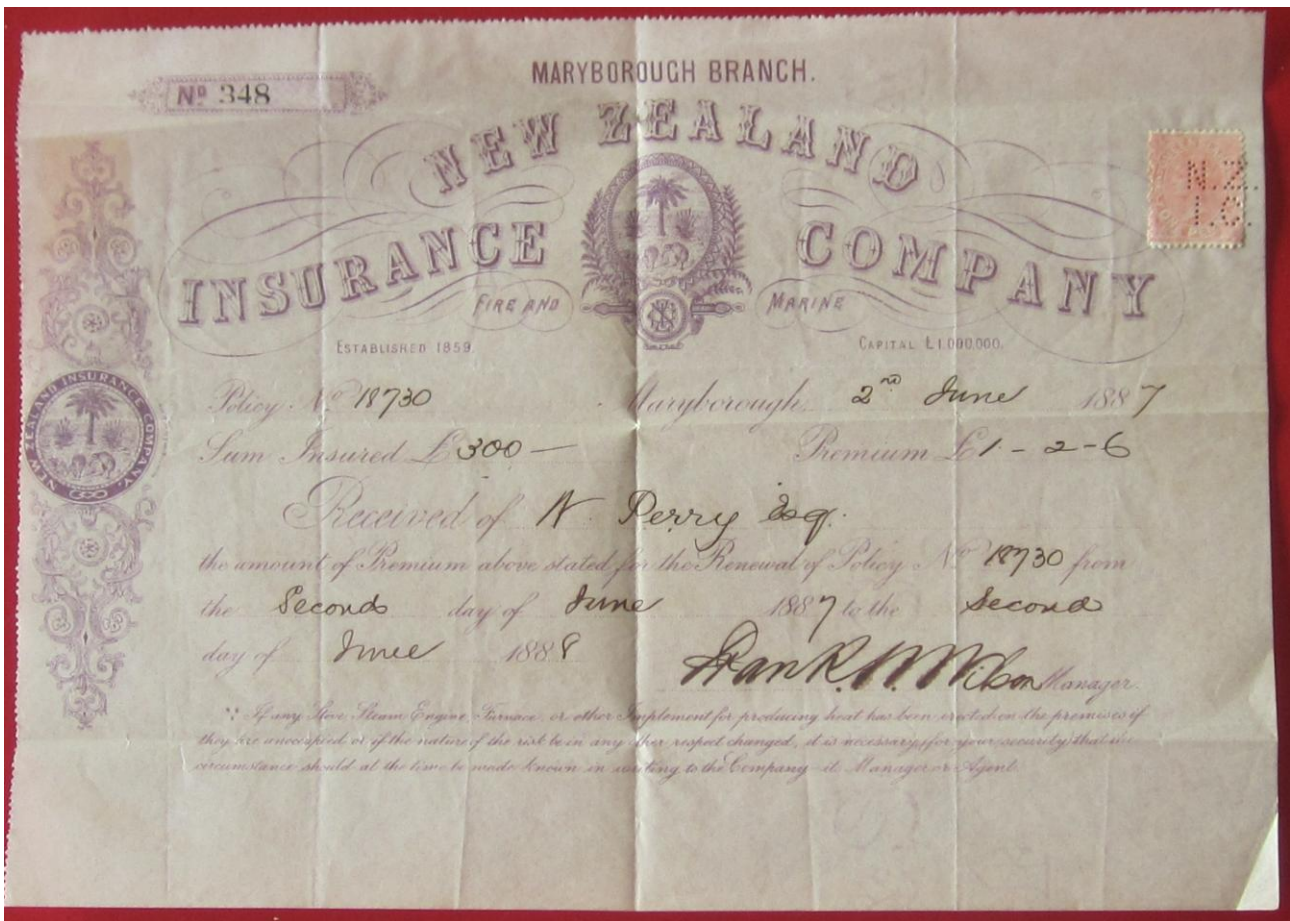 MARYBOROUGH BRANCH.
Nº 348
NEW ZEALAND
INSURANCE COMPANY
FIRE AND MARINE
N.Z.
I.C.
ESTABLISHED 1859.
CAPITAL £1.000.000.
NEW ZEALAND INSURANCE COMPANY.
Policy Nº 18730 Maryborough 2nd June 1887
Sum Insured £300- Premium £1-2-6
Received of Perry Esq.
the amount of Premium above stated for the Renewal of Policy Nº 18730 from
the Second day of June 1887 to the Second
day of June 1888
Frank Wilson Manager.
If any Stove, Steam Engine, Furnace, or other Implement for producing heat has been erected on the premises if
they are unoccupied or if the nature of the risk be in any other respect changed, it is necessary, for your security, that the
circumstance should at the time be made known in writing to the Company it Manager or Agent.